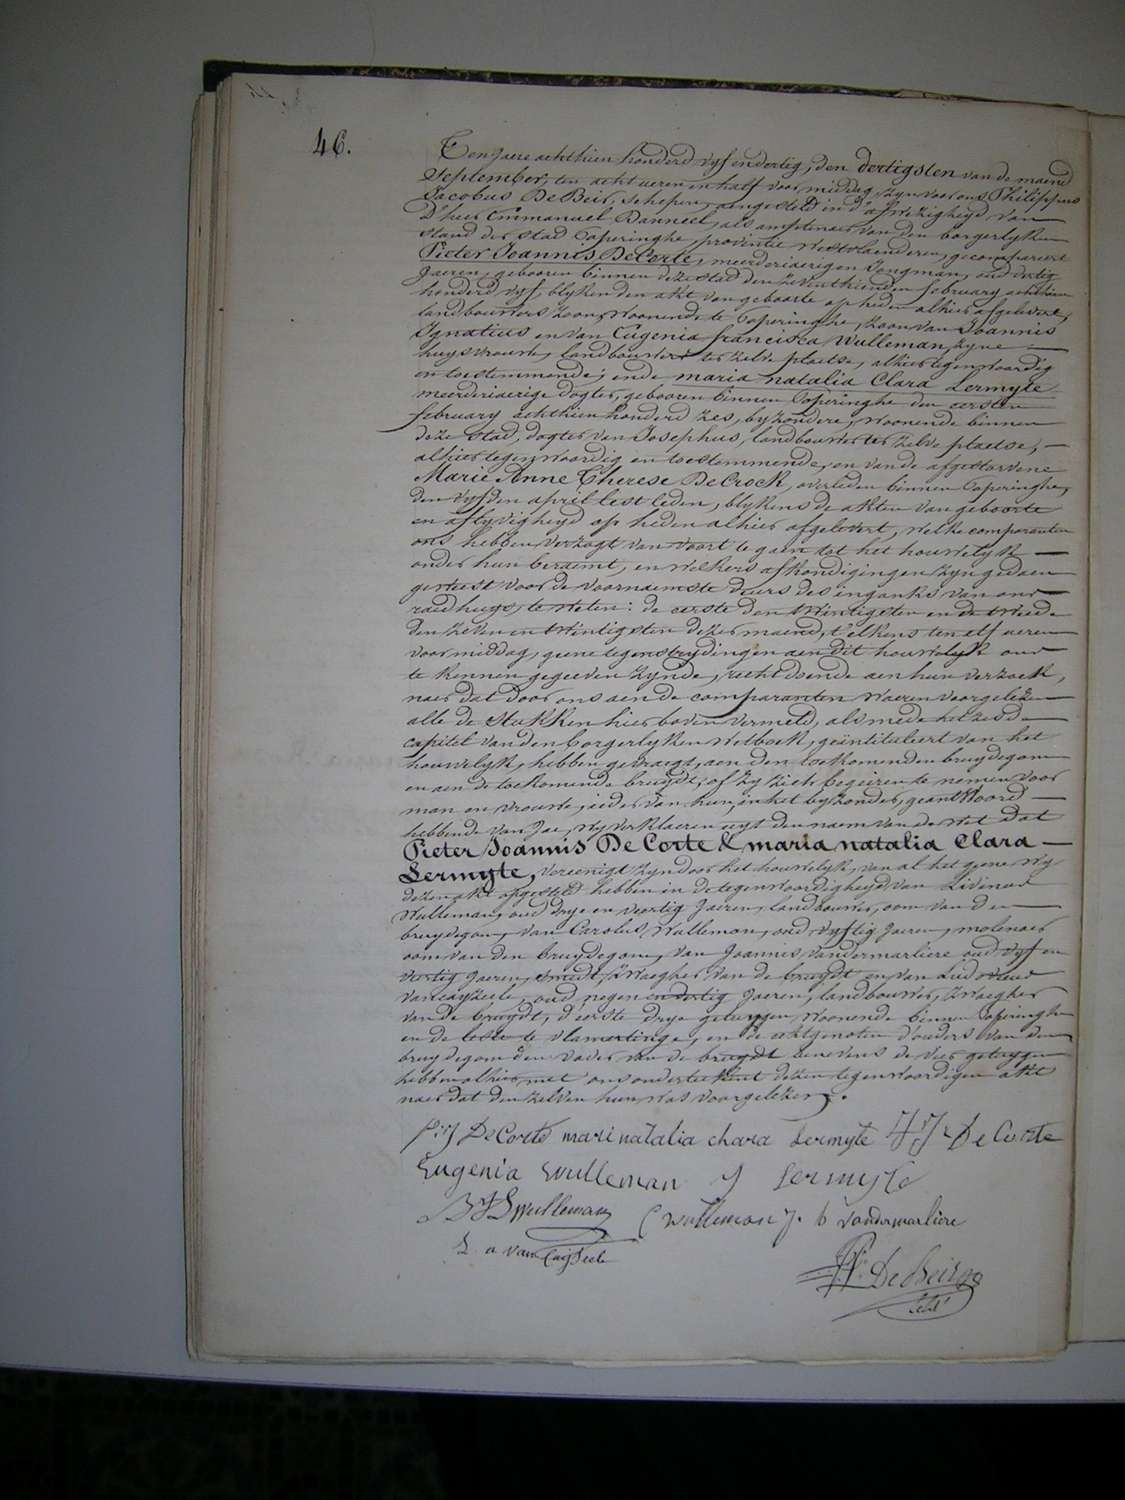 46.
Ten Jaere achthien honderd vyf en dertig, den dertigsten van de maend
September, ten acht ueren en half voor middag, zyn voor ons Philippus
Jacobus De Beir, Schepen, aengesteld in d'afwezigheyd van
D'heer Emmanuel Danneel, als amptenaer van den borgerlyken
stand der stad Poperinghe, provintie Westvlaenderen, gecompareert
Pieter Joannis De Corte, meerderjaerigen Jongman, oud dertig
Jaeren, gebooren binnen deze stad den zeventhienden february achthien
honderd vyf, blyken den akt van geboorte op heden alhier afgelevert,
landbouwers zoon, woonende te Poperinghe, zoon van Joannis
Ignatius en van Eugenia francisca Wulleman, zyne
huysvrouwe, landbouwers ter zelve plaetse, alhier tegenwoordig
en toestemmende; ende maria natalia Clara Lermyte
meerderiaerige dogter, gebooren binnen Poperinghe den eersten
february achthien honderd zes, byzondere, woonende binnen
deze stad, dogter van Josephus, landbouwer ter zelve plaetse,
alhier tegenwoordig en toestemmende, en van de afgestorvene
Marie Anne Therese De Crock, overleden binnen Poperinghe,
den vyfden april lest leden, blykens de akten van geboorte
en aflyvigheyd op heden alhier afgelevert, welke comparanten
ons hebben verzogt van voort te gaen tot het houwelyk
onder hun beraemt, en welkers afkondigingen zyn gedaen
geweest voor de voornaemste deure des inganks van ons
raedhuys, te weten: de eerste den twintigsten en de tweede
den zeven en twintigsten dezer maend, t'elkens ten elf ueren
voormiddag, geene tegenstrydingen aen dit houwelyk ons
te kennen gegeeven zynde, recht doende aen hun verzoek,
naer dat door ons aen de comparanten waeren voorgelezen
alle de stukken hier boven vermeld, alsmede het zesde
capitel van den borgerlyken Wetboek, geïntituleert van het
houwelyk, hebben gevraegt, aen den toekomenden bruydegom
en aen de toekomende bruydt, of zy zich begeiren te nemen voor
man en vrouwe, ieder van hun, in het byzonder, geantwoord
hebbende van Jae, wy verklaeren uyt den naem van de wet dat
Pieter Joannis De Corte & maria natalia Clara
Lermyte, vereenigt zyn door het houwelyk, van al het geene wy
dezen akt opgesteld hebben in de tegenwoordigheyd van Livinus
Wulleman, oud drye en veertig Jaeren, landbouwer, oom van den
bruydegom, van Carolus Wulleman, oud vyftig Jaeren, molenaer
oom van den bruydegom, van Joannis vandermarliere oud vyf en
veertig Jaeren, smidt, zwaegher van de bruydt en van Ludovicus
vancayzeele, oud negen en dertig Jaeren, landbouwer, zwaegher
van de bruydt, d'eerste drye getuygen woonende binnen Poperinghe
en de leste te vlamertinge, en de echtgenoten d'ouders van den
bruydegom den vader van de bruydt benevens de vier getuygen
hebben alhier met ons onderteekent dezen tegenwoordigen akt
naer dat den zelven hun was voorgelezen.
P:J DeCorte mari natalia chara Lermyte J:J: De Corte
Eugenia Wulleman J Lermyte
Wulleman C Wulleman J. b Vandermarliere
L. a van Cayseele
Ph: De Beir